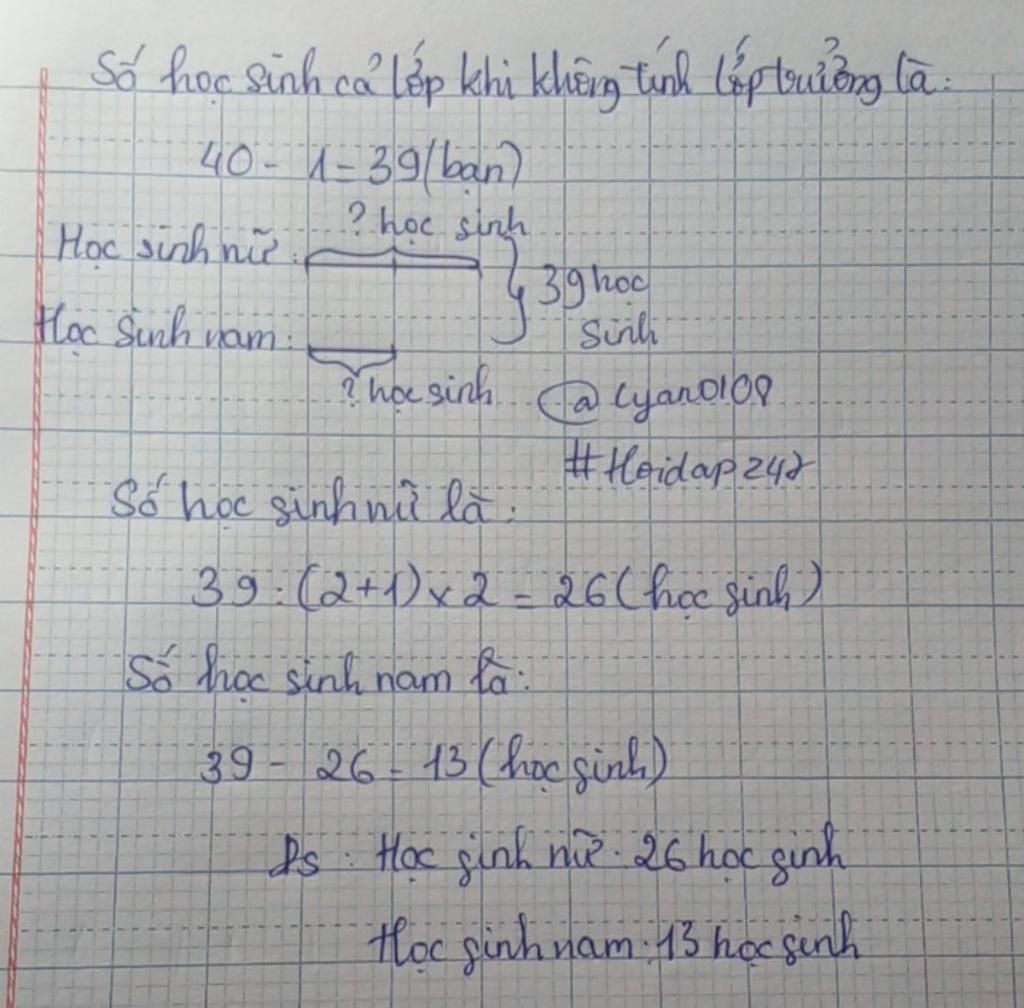 Số học sinh cả lớp khi không tính lớp trưởng là:
40 - 1 = 39 (bạn)
? học sinh
Học sinh nữ:
39 học
sinh
Học sinh nam:
? học sinh
@ Cyan0108
#Hoidap247
Số học sinh nữ là:
39 : (2+1) x 2 = 26 (học sinh)
Số học sinh nam là:
39 - 26 = 13 (học sinh)
Đs : Học sinh nữ : 26 học sinh
Học sinh nam : 13 học sinh